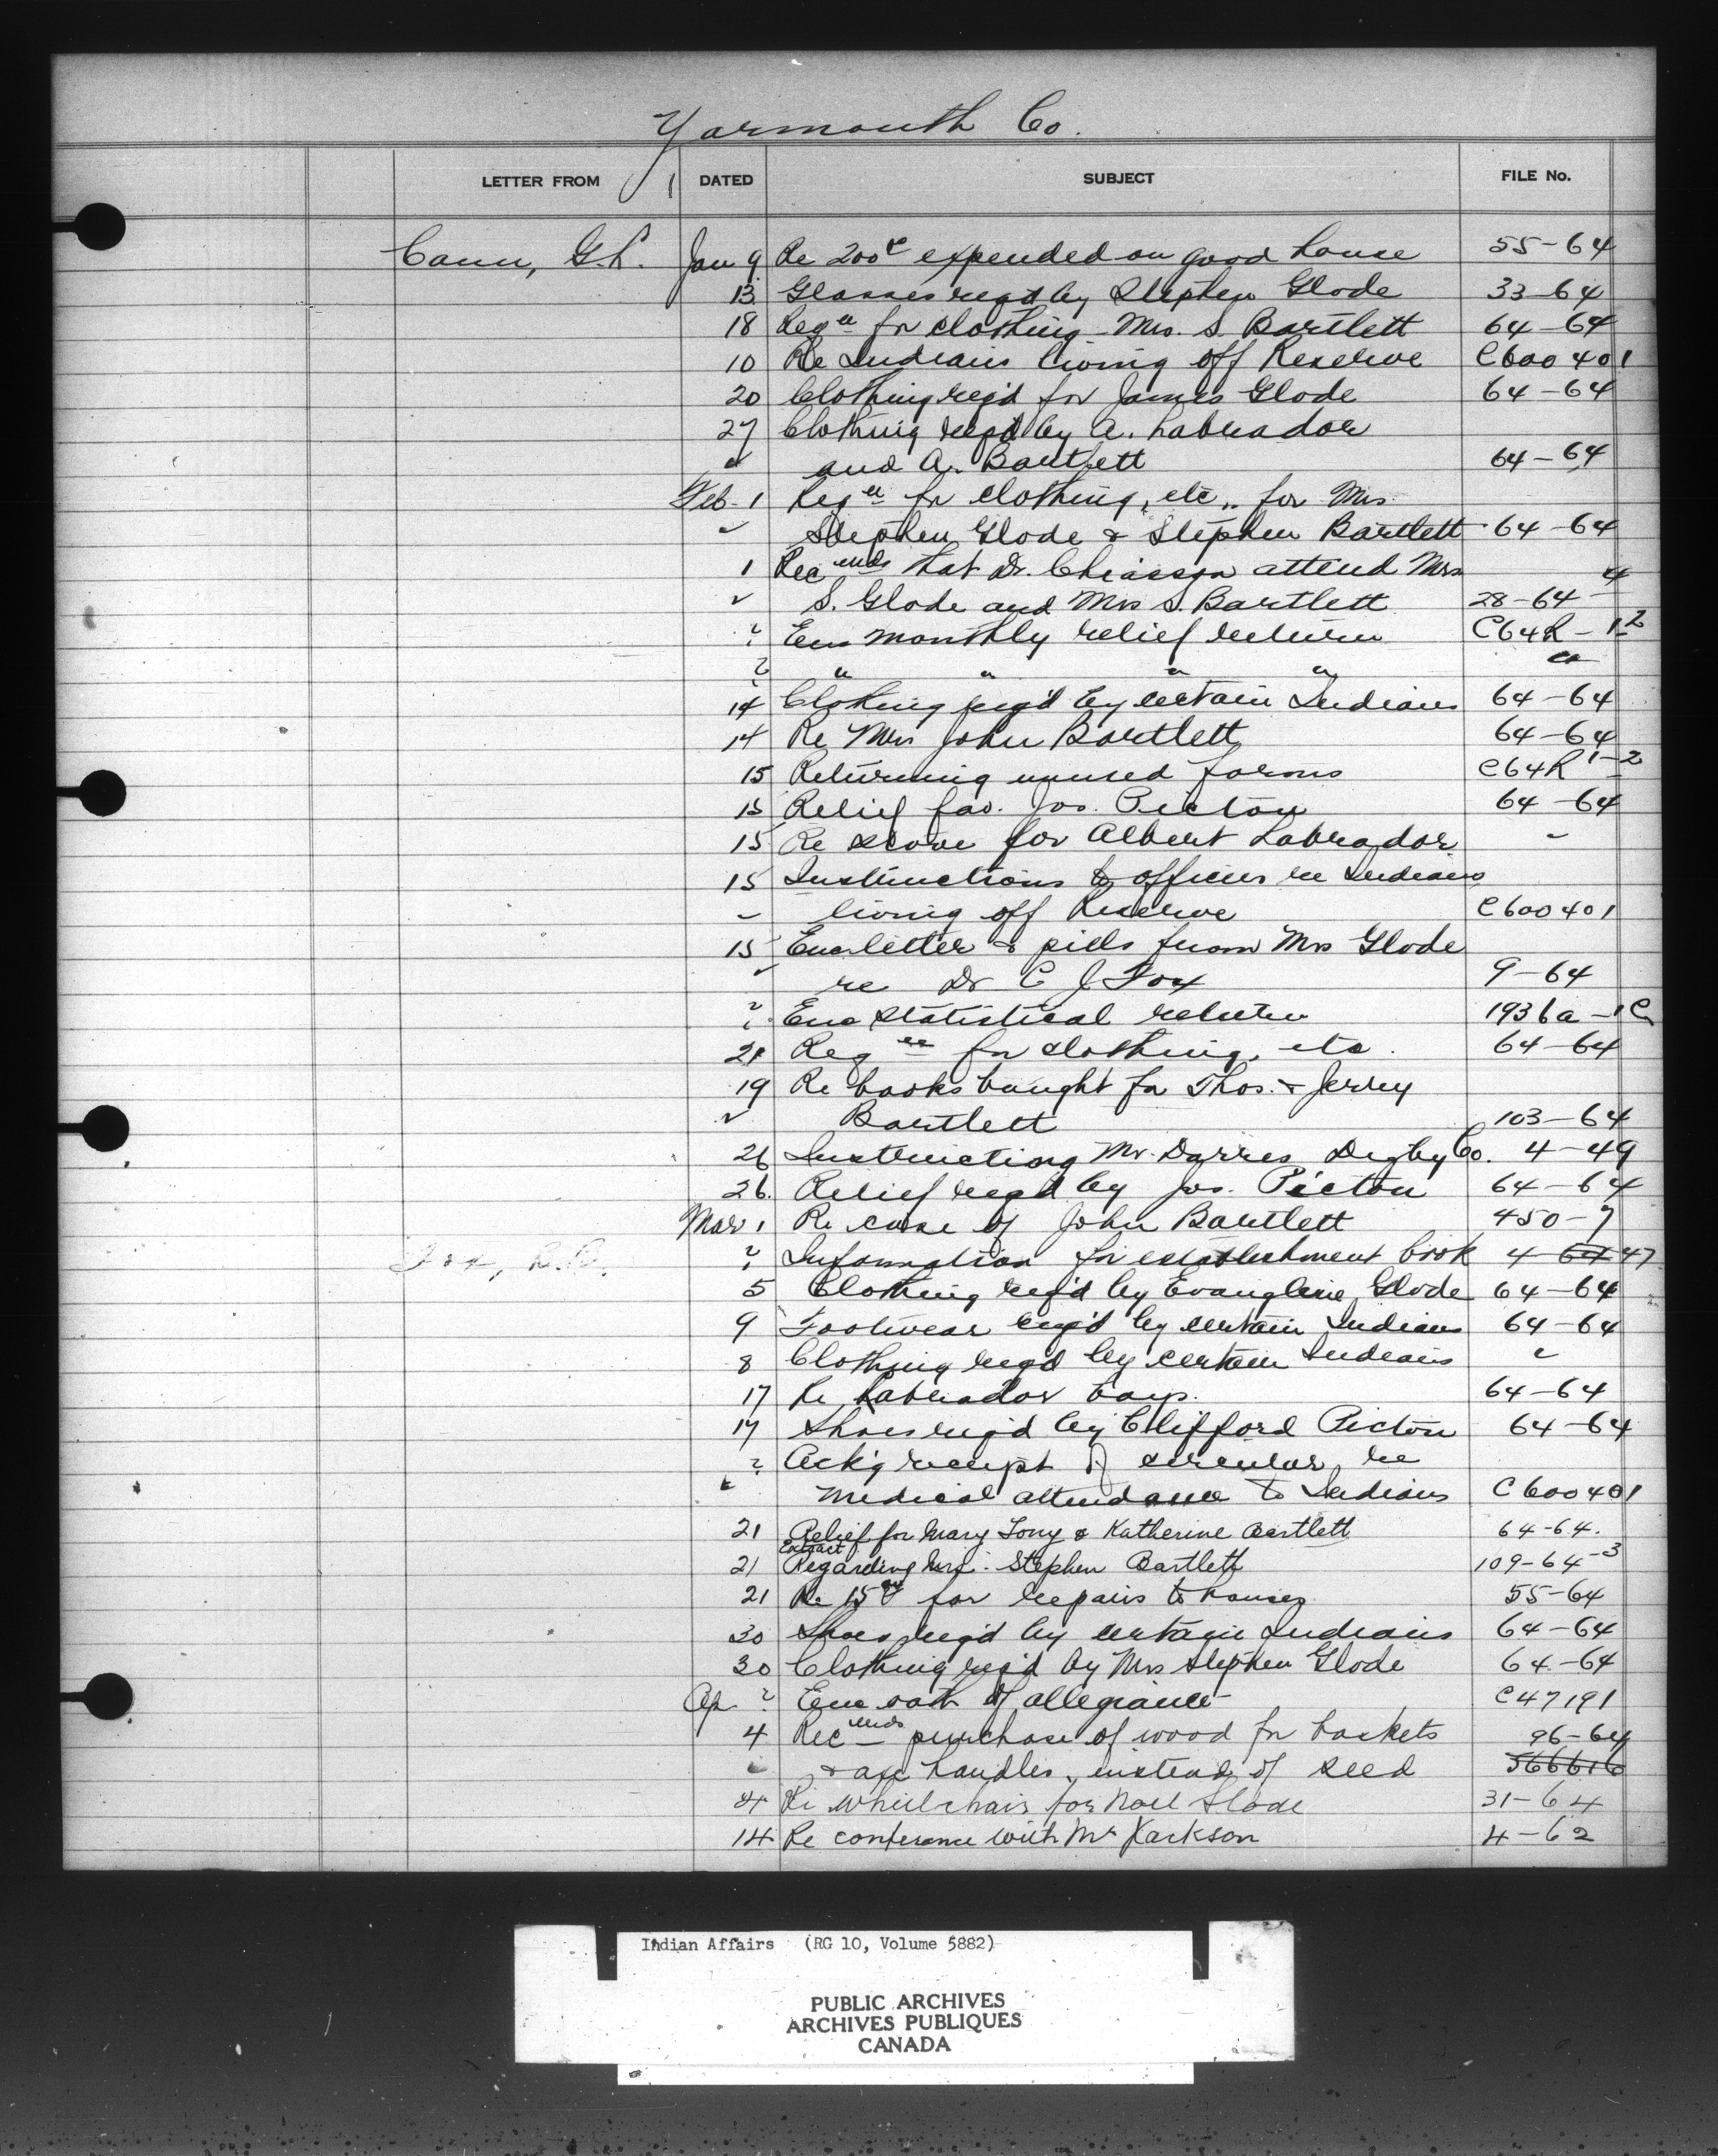 Yarmouth Co.
LETTER FROM DATED SUBJECT FILE No.
Cann, G.L. Jan 9 Re 200 expended on good house 55-64
13 Glasses req'd by Stephen Glode 33-64
18 Reqn for clothing Mrs. S. Bartlett 64-64
10 Re Indians living off Reserve C600401
20 Clothing req'd for James Glode 64-64
27 Clothing req'd by A. Labrador
" and A. Bartlett 64-64
Feb. 1 Reqn for clothing, etc., for Mrs
" Stephen Glode & Stephen Bartlett 64-64
1 Recmds that Dr. Chiasson attend Mrs
" S. Glode and Mrs S. Bartlett 28-64-4
? Enc monthly relief return C64R-1-2
? " " " " "
14 Clothing req'd by certain Indians 64-64
14 Re Mrs John Bartlett 64-64
15 Returning unused forms C64R 1-2
15 Relief fav. Jos. Picton 64-64
15 Re stove for Albert Labrador "
15 Instructions to officers re Indians
" living off Reserve C600401
15 Enc letter & pills from Mrs Glode
" re Dr C J Fox 9-64
? Enc statistical return 1936a-1C
21 Reqn for clothing, etc. 64-64
19 Re books bought for Thos. & Jerrey
" Bartlett 103-64
26 Instructing Mr. Darres Digby Co. 4-49
26. Relief req'd by Jos. Picton 64-64
Mar 1 Re case of John Bartlett 450-7
Fox, R.B. ? Information for establishment book 4-64 47
5 Clothing req'd by Evangline Glode 64-64
9 Footwear req'd by certain Indians 64-64
8 Clothing req'd by certain Indians "
17 Re Labrador boys. 64-64
17 Shoes req'd by Clifford Picton 64-64
? Ack'g receipt of circular re
" medical attendance to Indians C600401
21 Relief for Mary Tony & Katherine Bartlett 64-64.
Extract
21 Regarding Mrs. Stephen Bartlett 109-64-3
21 Re 15 for repairs to houses 55-64
30 Shoes req'd by certain Indians 64-64
30 Clothing req'd by Mrs Stephen Glode 64-64
Ap ? Enc oath of allegiance C47191
4 Recmds purchase of wood for baskets 96-64
" & axe handles, instead of seed 566616
4 Re wheelchair for Noel Glode 31-64
14 Re conference with Mr Jackson 4-62
Indian Affairs (RG 10, Volume 5882)
PUBLIC ARCHIVES
ARCHIVES PUBLIQUES
CANADA